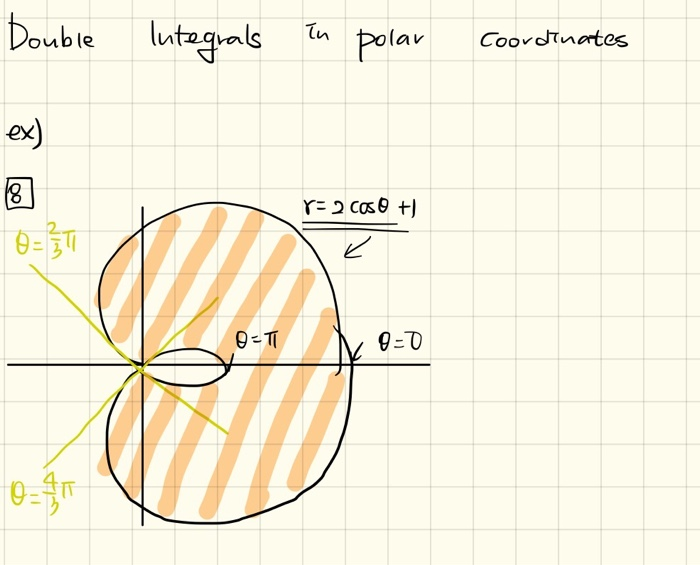 Double Integrals in polar coordinates
ex)
8
r=2cosθ+1
θ=2/3π
θ=π
θ=0
θ=4/3π